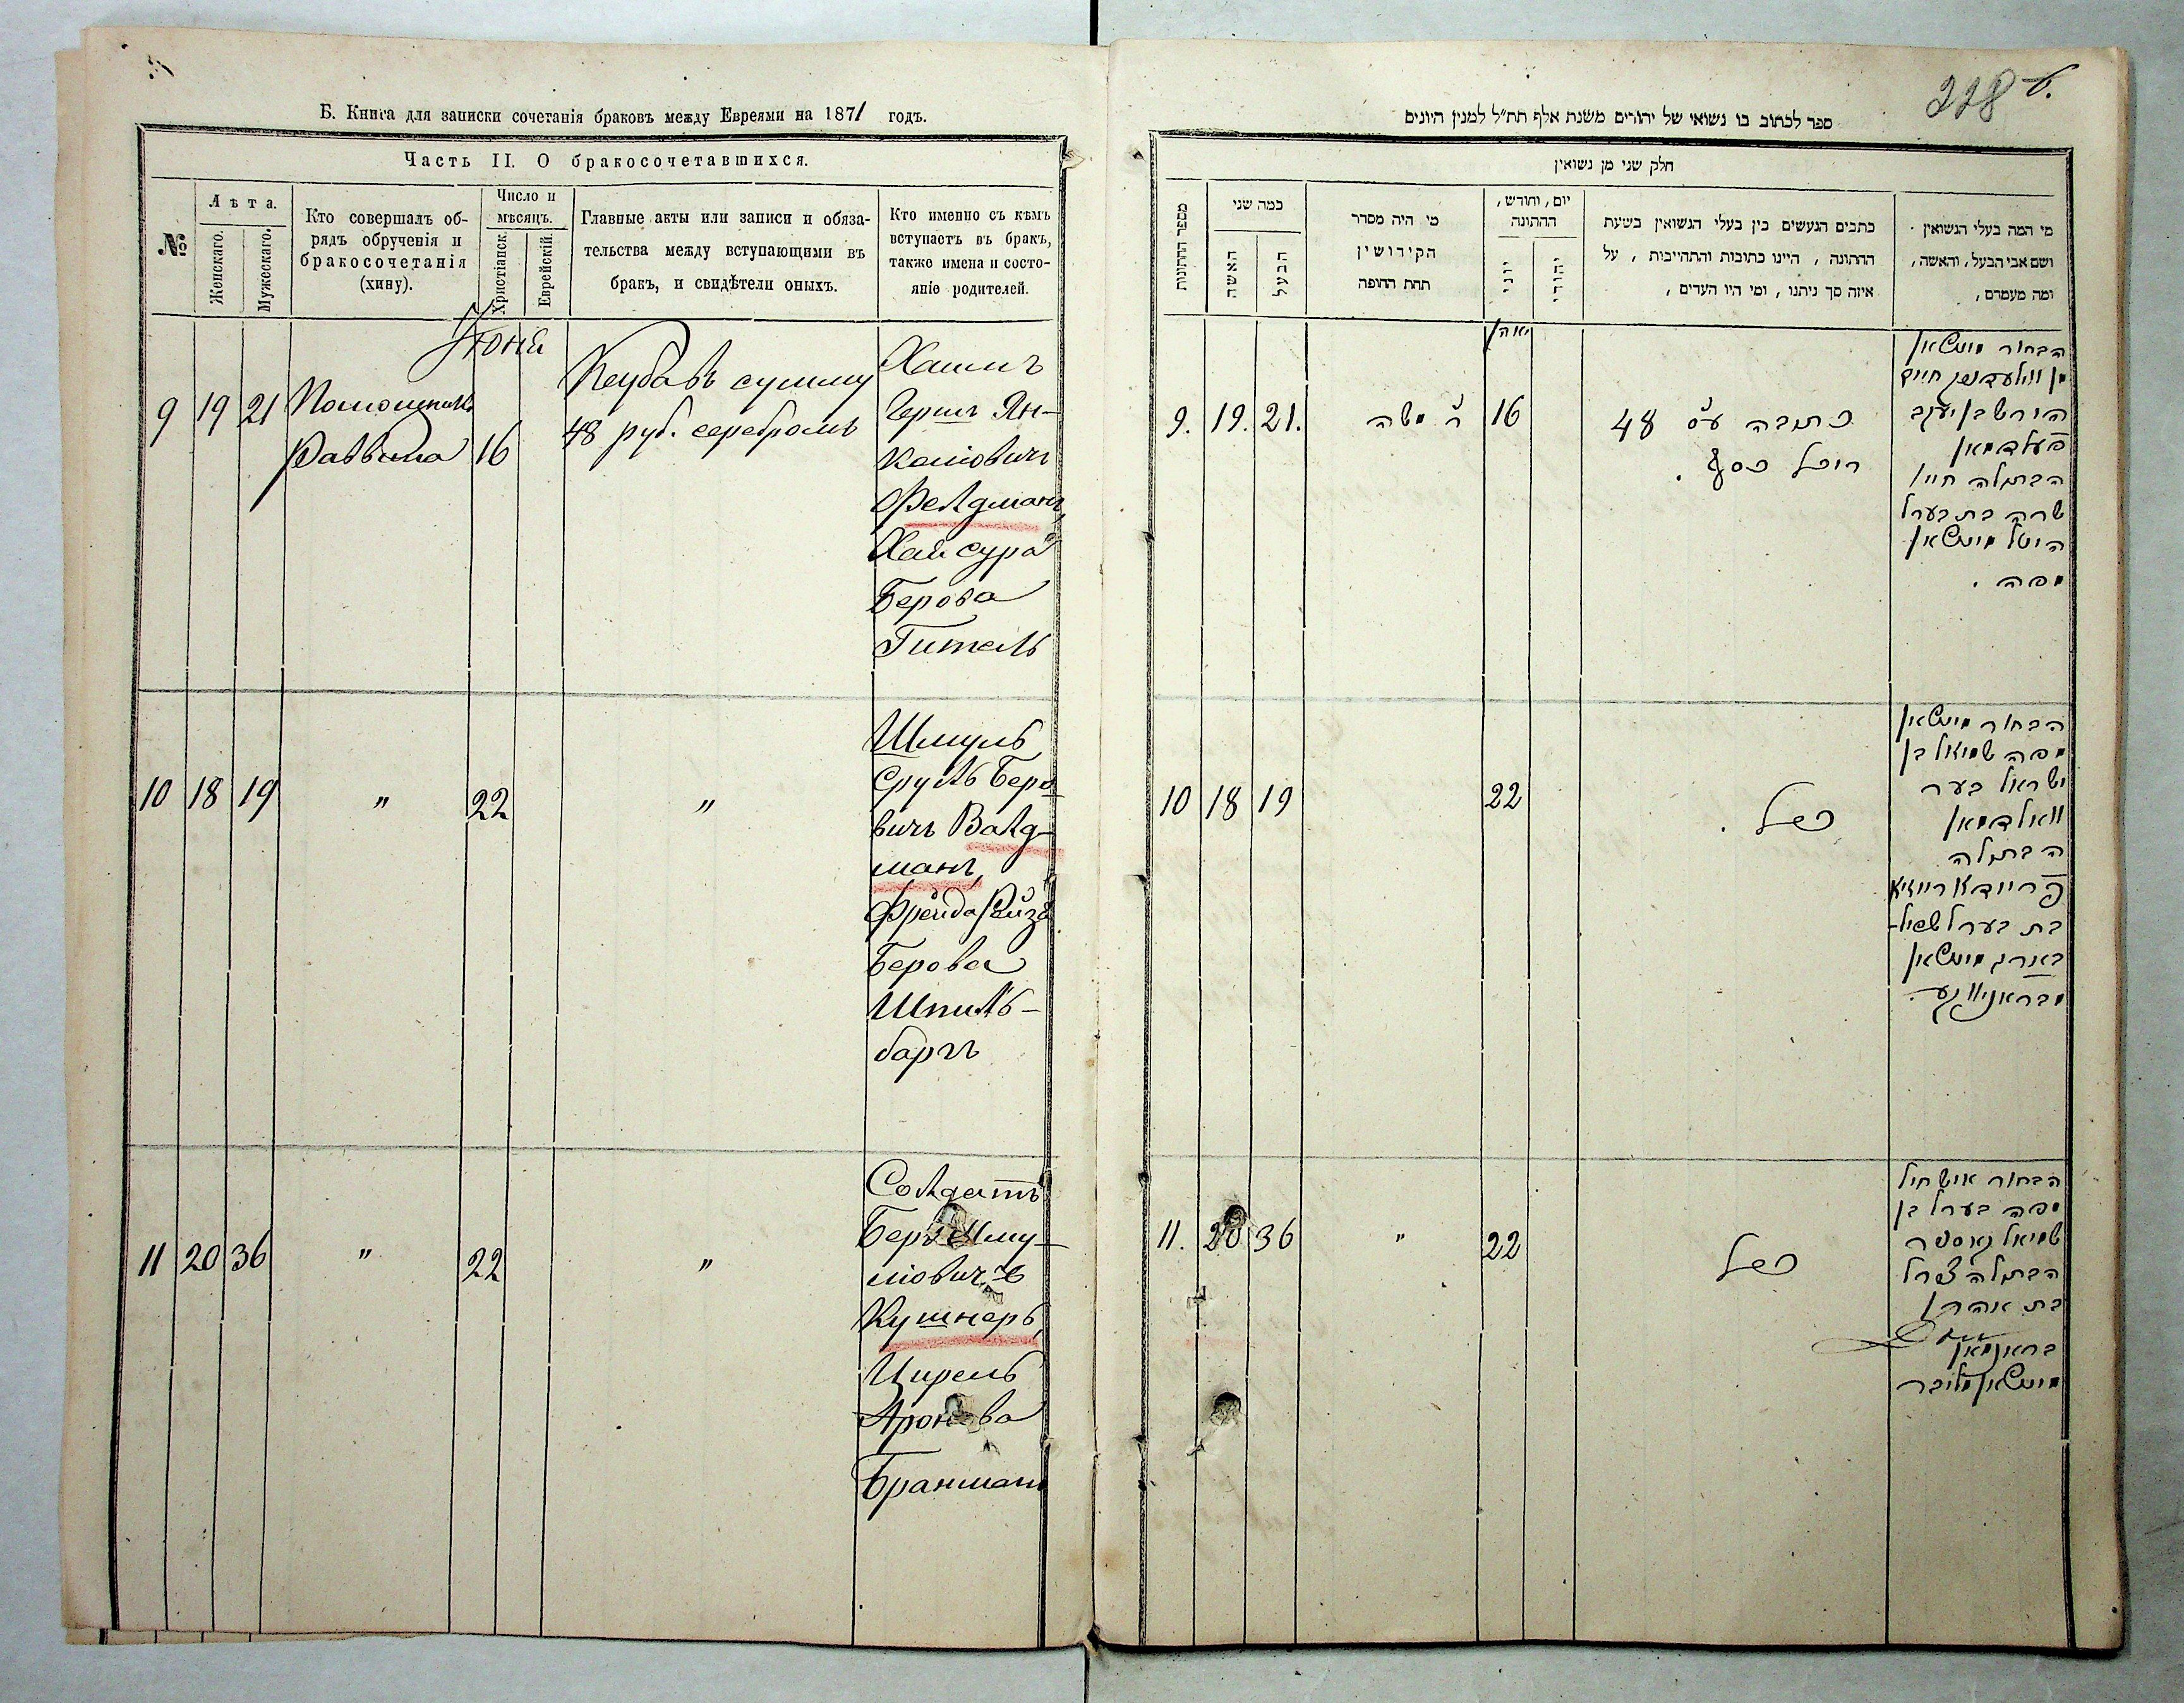 Б. Книга для записки сочетанія браковъ между Евреями на 1871 годъ.
Часть II. О бракосочетавшихся.
№
Лѣта.
Женскаго.
Мужескаго.
Кто совершалъ об-
рядъ обрученія и
бракосочетанія
(хипу).
Число и
мѣсяцъ.
Христіанск.
Еврейскій.
Главные акты или записи и обяза-
тельства между вступающими въ
бракъ, и свидѣтели оныхъ.
Кто именно съ кѣмъ
вступаетъ въ бракъ,
также имена и состо-
яніе родителей.
Іюня
9 19 21
Помошник
Раввина
16
Кеуба въ сумму
48 руб. серебромъ
Хаимъ
Гершъ Ян-
келіовичъ
Фелдманъ,
Хая сура
Берова
Гитель
10 18 19 " 22 "
Шмуль
Сруль Беро-
вичъ Валд-
манъ,
Фрейда Рейза
Берова
Шпиль-
баргъ
11 20 36 " 22 "
Солдатъ
Беръ Шму-
ліовичъ
Кушнеръ,
Цирель
Аронова
Бранманъ
228 б.
ספר לכתוב בו נשואי של יהודים משנת אלף תת״ל למנין היונים
חלק שני מן נשואין
מספר החתונות
כמה שני
האשה
הבעל
מי היה מסדר
הקידושין
תחת החופה
יום, וחודש,
החתונה
יוני
יהודי
כתבים הנעשים בין בעלי הנשואין בשעת
החתונה, היינו כתובות והתחייבות, על
איזה סך ניתנו, ומי היו העדים,
מי המה בעלי הנשואין
ושם אבי הבעל, והאשה,
ומה מעמדם,
9. 19. 21.
ר׳ משה
16
כתובה ע״ס 48
רובל כסף.
הבחור
הירש בן יעקב
פעלדמאן
הבתולה חיה
שרה בת בערל
היטל
מפה.
10 18 19
22
כנ״ל.
הבחור
מפה שמואל בן
ישראל בער
וואלדמאן
הבתולה
פריידא רייזא
בת בערל שפיל-
בארג
11. 20 36 " 22
כנ״ל
הבחור איש חיל
מפה בערל בן
שמואל
הבתולה צירל
בת אהרן
בראנמאן